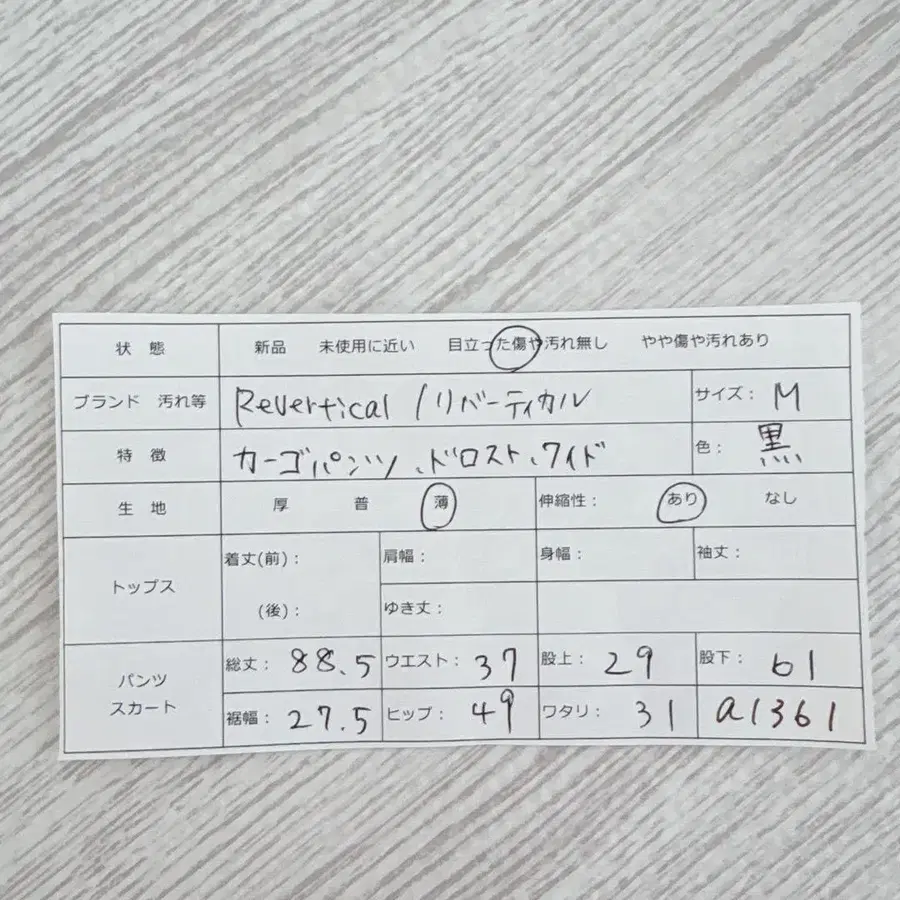 状 態 新品 未使用に近い 目立った傷や汚れ無し やや傷や汚れあり
ブランド 汚れ等 Revertical / リバーティカル サイズ： M
特 徴 カーゴパンツ、ドロスト、ワイド 色： 黒
生 地 厚 普 薄 伸縮性： あり なし
トップス 着丈(前)： 肩幅： 身幅： 袖丈：
(後)： ゆき丈：
パンツ スカート 総丈： 88.5 ウエスト： 37 股上： 29 股下： 61
裾幅： 27.5 ヒップ： 49 ワタリ： 31 a1361